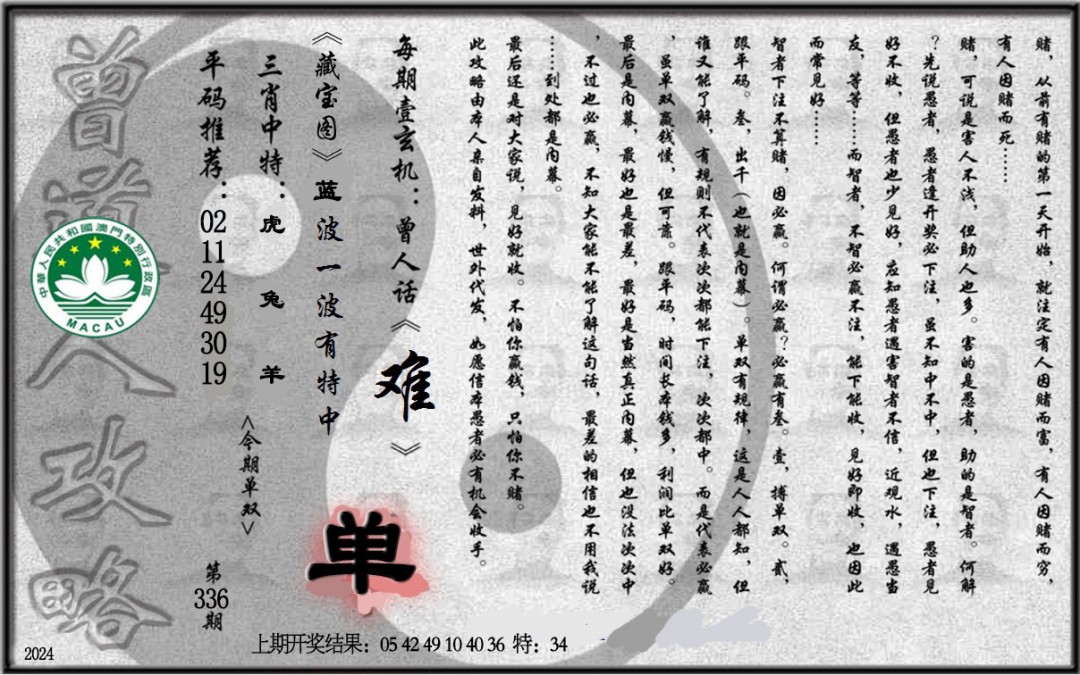 赌，从前有赌的第一天开始，就注定有人因赌而富，有人因赌而穷，
有人因赌而死……
赌，可说是害人不浅，但助人也多。害的是愚者，助的是智者。何解
？先说愚者，愚者逢开奖必下注，虽不知中不中，但也下注，愚者见
好不收，但愚者也少见好，应知愚者遇害智者不信，近观水，遇愚当
友，等等……而智者，不智必赢不注，能下能收，见好即收，也因此
而常见好……
智者下注不算赌，因必赢。何谓必赢？必赢有叁。壹，搏单双。贰，
跟平码。叁，出千（也就是内幕）。单双有规律，这是人人都知，但
谁又能了解，有规则不代表次次都能下注，次次都中。而是代表必赢
，虽单双赢钱慢，但可靠。跟平码，时间长本钱多，利润比单双好。
最后是内幕，最好也是最差，最好是当然真正内幕，但也没法次次中
，不过也必赢，不知大家能不能了解这句话，最差的相信也不用我说
……到处都是内幕。
最后还是对大家说，见好就收。不怕你赢钱，只怕你不赌。
此攻略由本人亲自发料，世外代发，如愿信本愚者必有机会收手。
每期壹玄机：曾人话《难》
《藏宝图》蓝波一波有特中
三肖中特：虎 兔 羊
平码推荐：02 11 24 49 30 19
<今期单双>
单
第336期
曾道人攻略
中華人民共和國澳門特別行政區
MACAU
上期开奖结果：05 42 49 10 40 36 特：34
2024